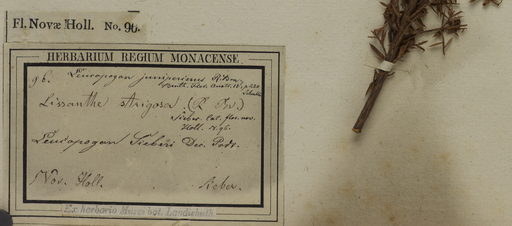 Fl. Novæ Holl. No. 96.
HERBARIUM REGIUM MONACENSE.
96. Leucopogon juniperinus R. Brown
Benth. Flor. Austr. IV, p.
Lissanthe strigosa. (R. Br.)
Sieber. Cal. flor. nov.
Holl. N. 96.
Leucopogon Sieberi Dec. Podr.
Nov. Holl. Sieber.
Ex herbario Musei bot. Landishuth.